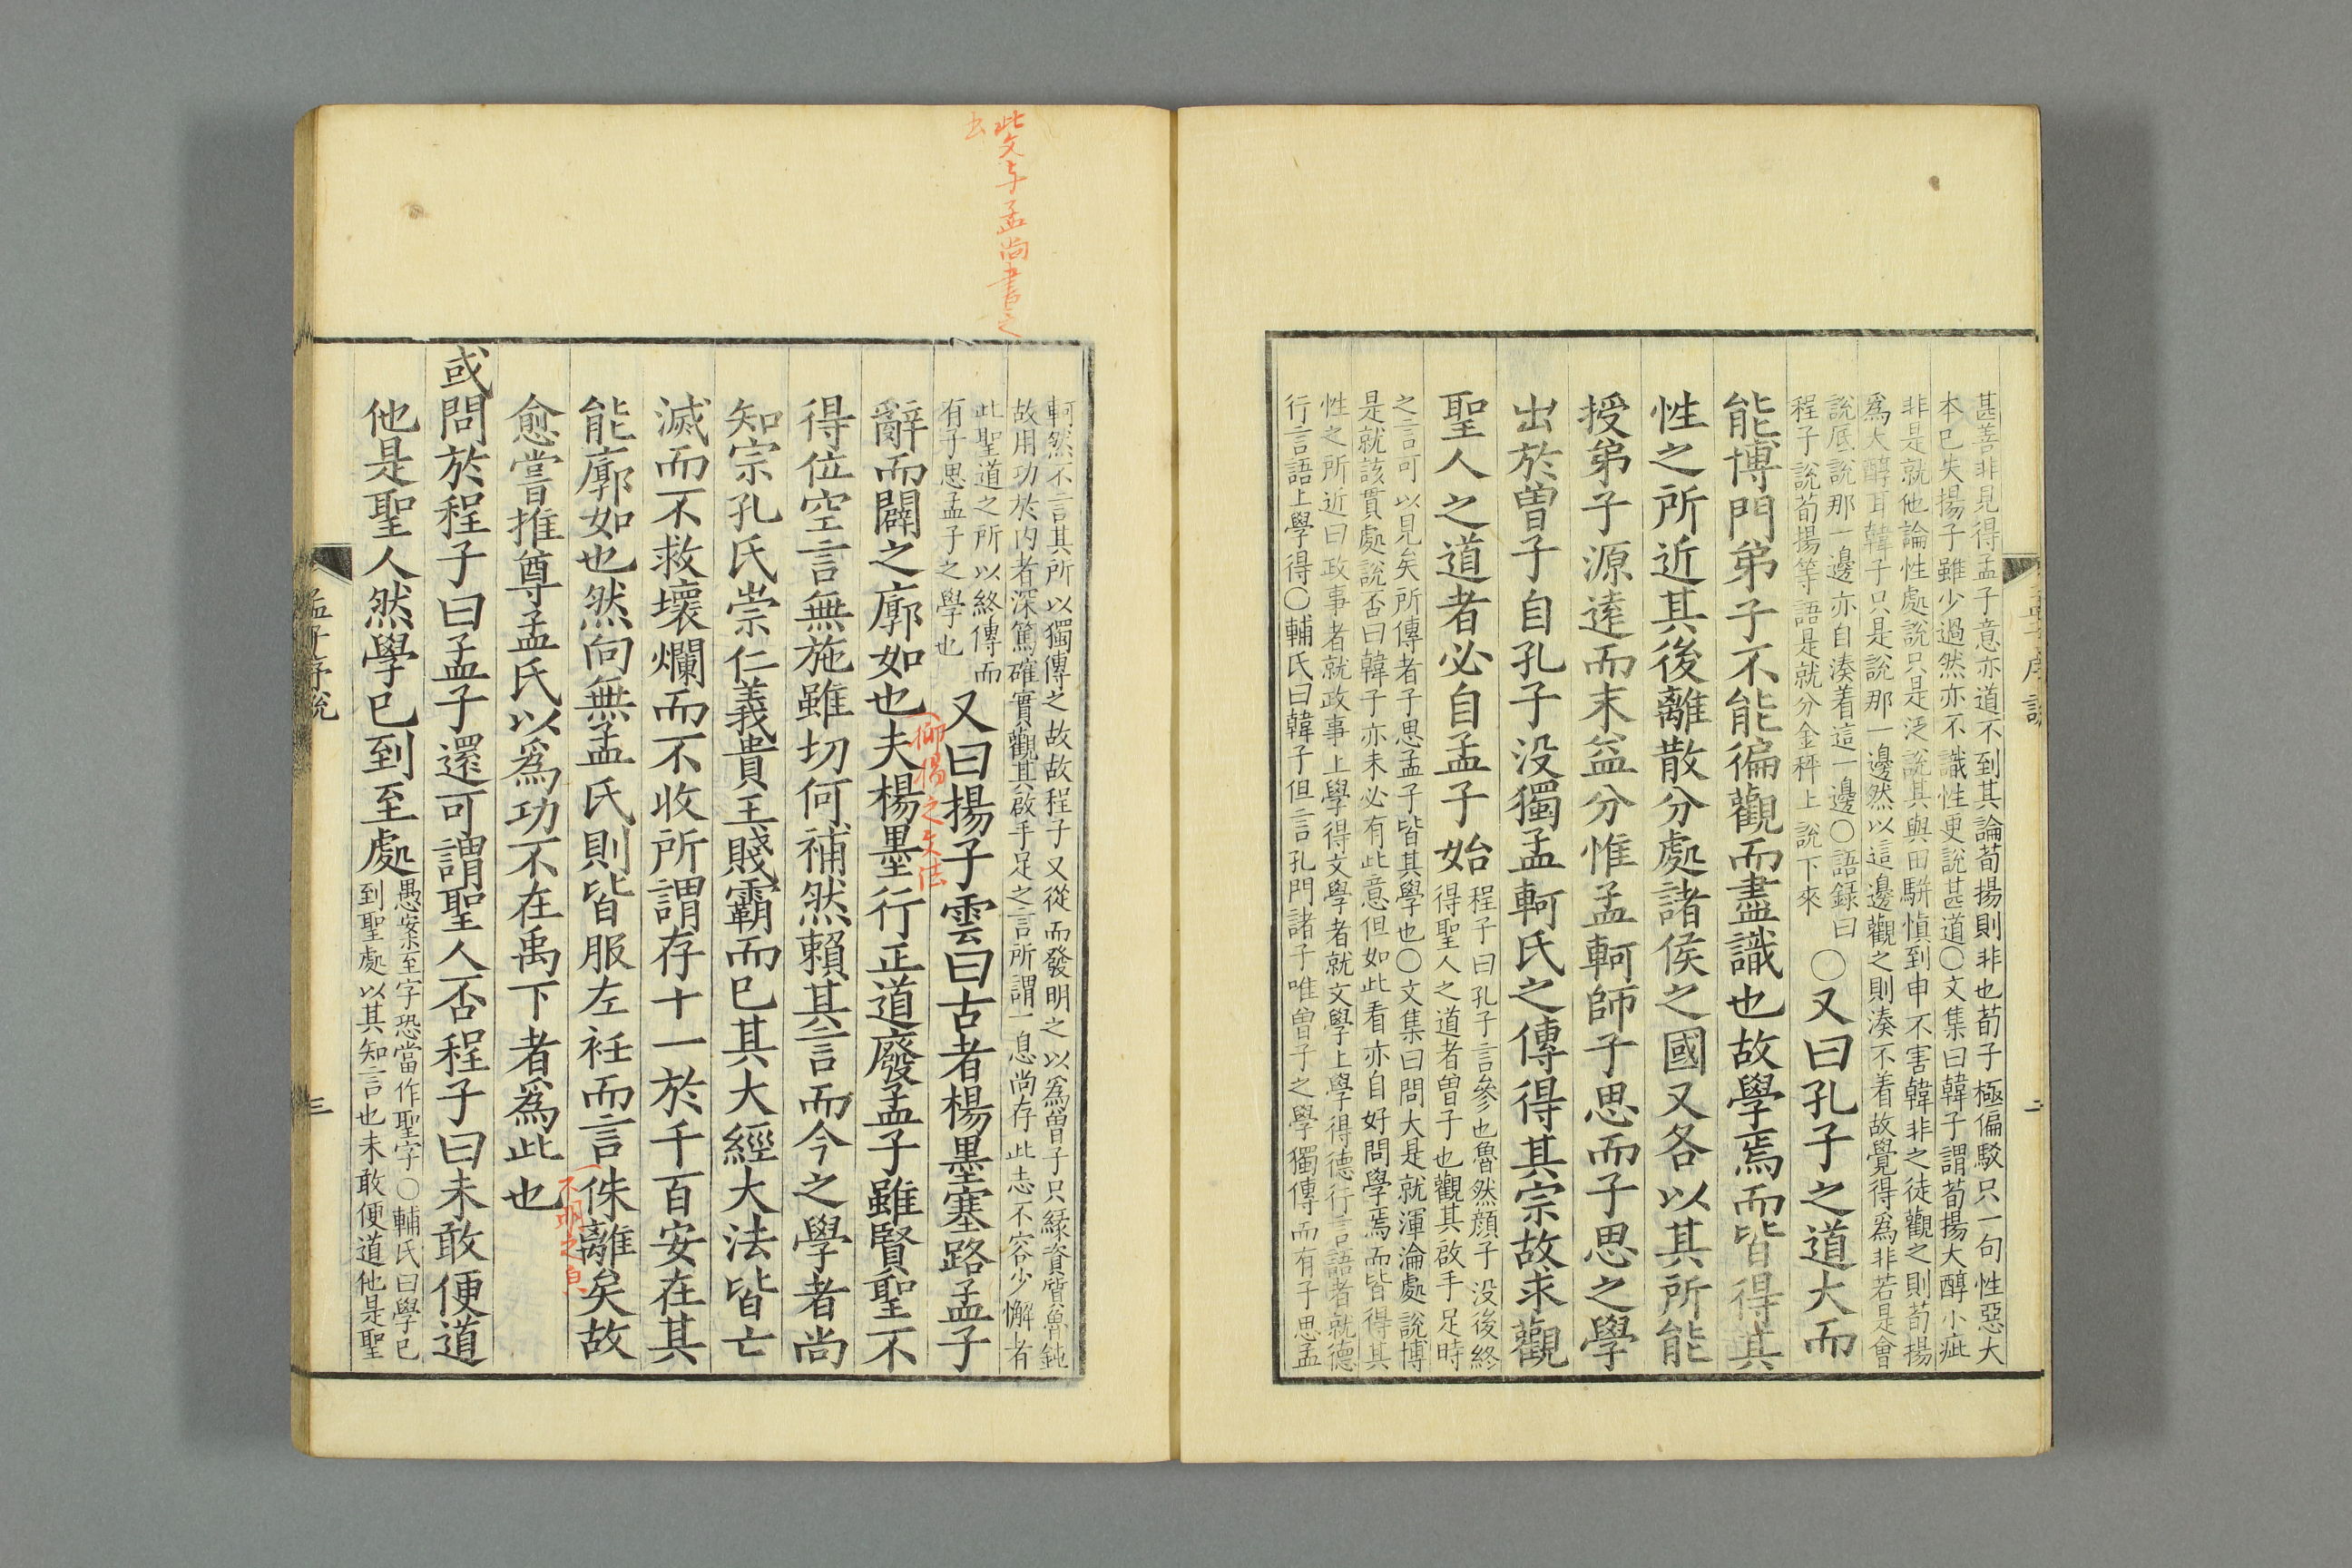 甚善非見得孟子意亦道不到其論荀揚則非也荀子極偏駁只一句性惡大
本已失揚子雖少過然亦不識性更說甚道〇文集曰韓子謂荀揚大醇小疵
非是就他論性處說只是泛說其與田駢慎到申不害韓非之徒觀之則荀揚
爲大醇耳韓子只是說那一邊然以這邊觀之則湊不着故覺得爲非若是會
說底說那一邊亦自湊着這一邊〇語録曰
程子說荀揚等語是就分金秤上說下來
〇又曰孔子之道大而
能博門弟子不能徧觀而盡識也故學焉而皆得其
性之所近其後離散分處諸侯之國又各以其所能
授弟子源遠而末益分惟孟軻師子思而子思之學
出於曾子自孔子没獨孟軻氏之傳得其宗故求觀
聖人之道者必自孟子始
程子曰孔子言參也魯然顔子没後終
得聖人之道者曾子也觀其啟手足時
之言可以見矣所傳者子思孟子皆其學也〇文集曰問大是就渾淪處說博
是就該貫處說否曰韓子亦未必有此意但如此看亦自好問學焉而皆得其
性之所近曰政事者就政事上學得文學者就文學上學得德行言語者就德
行言語上學得〇輔氏曰韓子但言孔門諸子唯曾子之學獨傳而有子思孟
孟子序說
此文与孟尚書之
軻然不言其所以獨傳之故故程子又從而發明之以爲曾子只緑資質魯鈍
故用功於内者深篤確實觀其啟手足之言所謂一息尚存此志不容少懈者
此聖道之所以終傳而
有子思孟子之學也
又曰揚子雲曰古者楊墨塞路孟子
辭而闢之廓如也夫楊墨行正道廢孟子雖賢聖不
得位空言無施雖切何補然賴其言而今之學者尚
知宗孔氏崇仁義貴王賤霸而已其大經大法皆亡
滅而不救壞爛而不收所謂存十一於千百安在其
能廓如也然向無孟氏則皆服左衽而言侏離矣故
愈嘗推尊孟氏以爲功不在禹下者爲此也
或問於程子曰孟子還可謂聖人否程子曰未敢便道
他是聖人然學已到至處
愚案至字恐當作聖字〇輔氏曰學已
到聖處以其知言也未敢便道他是聖
孟子序說
三